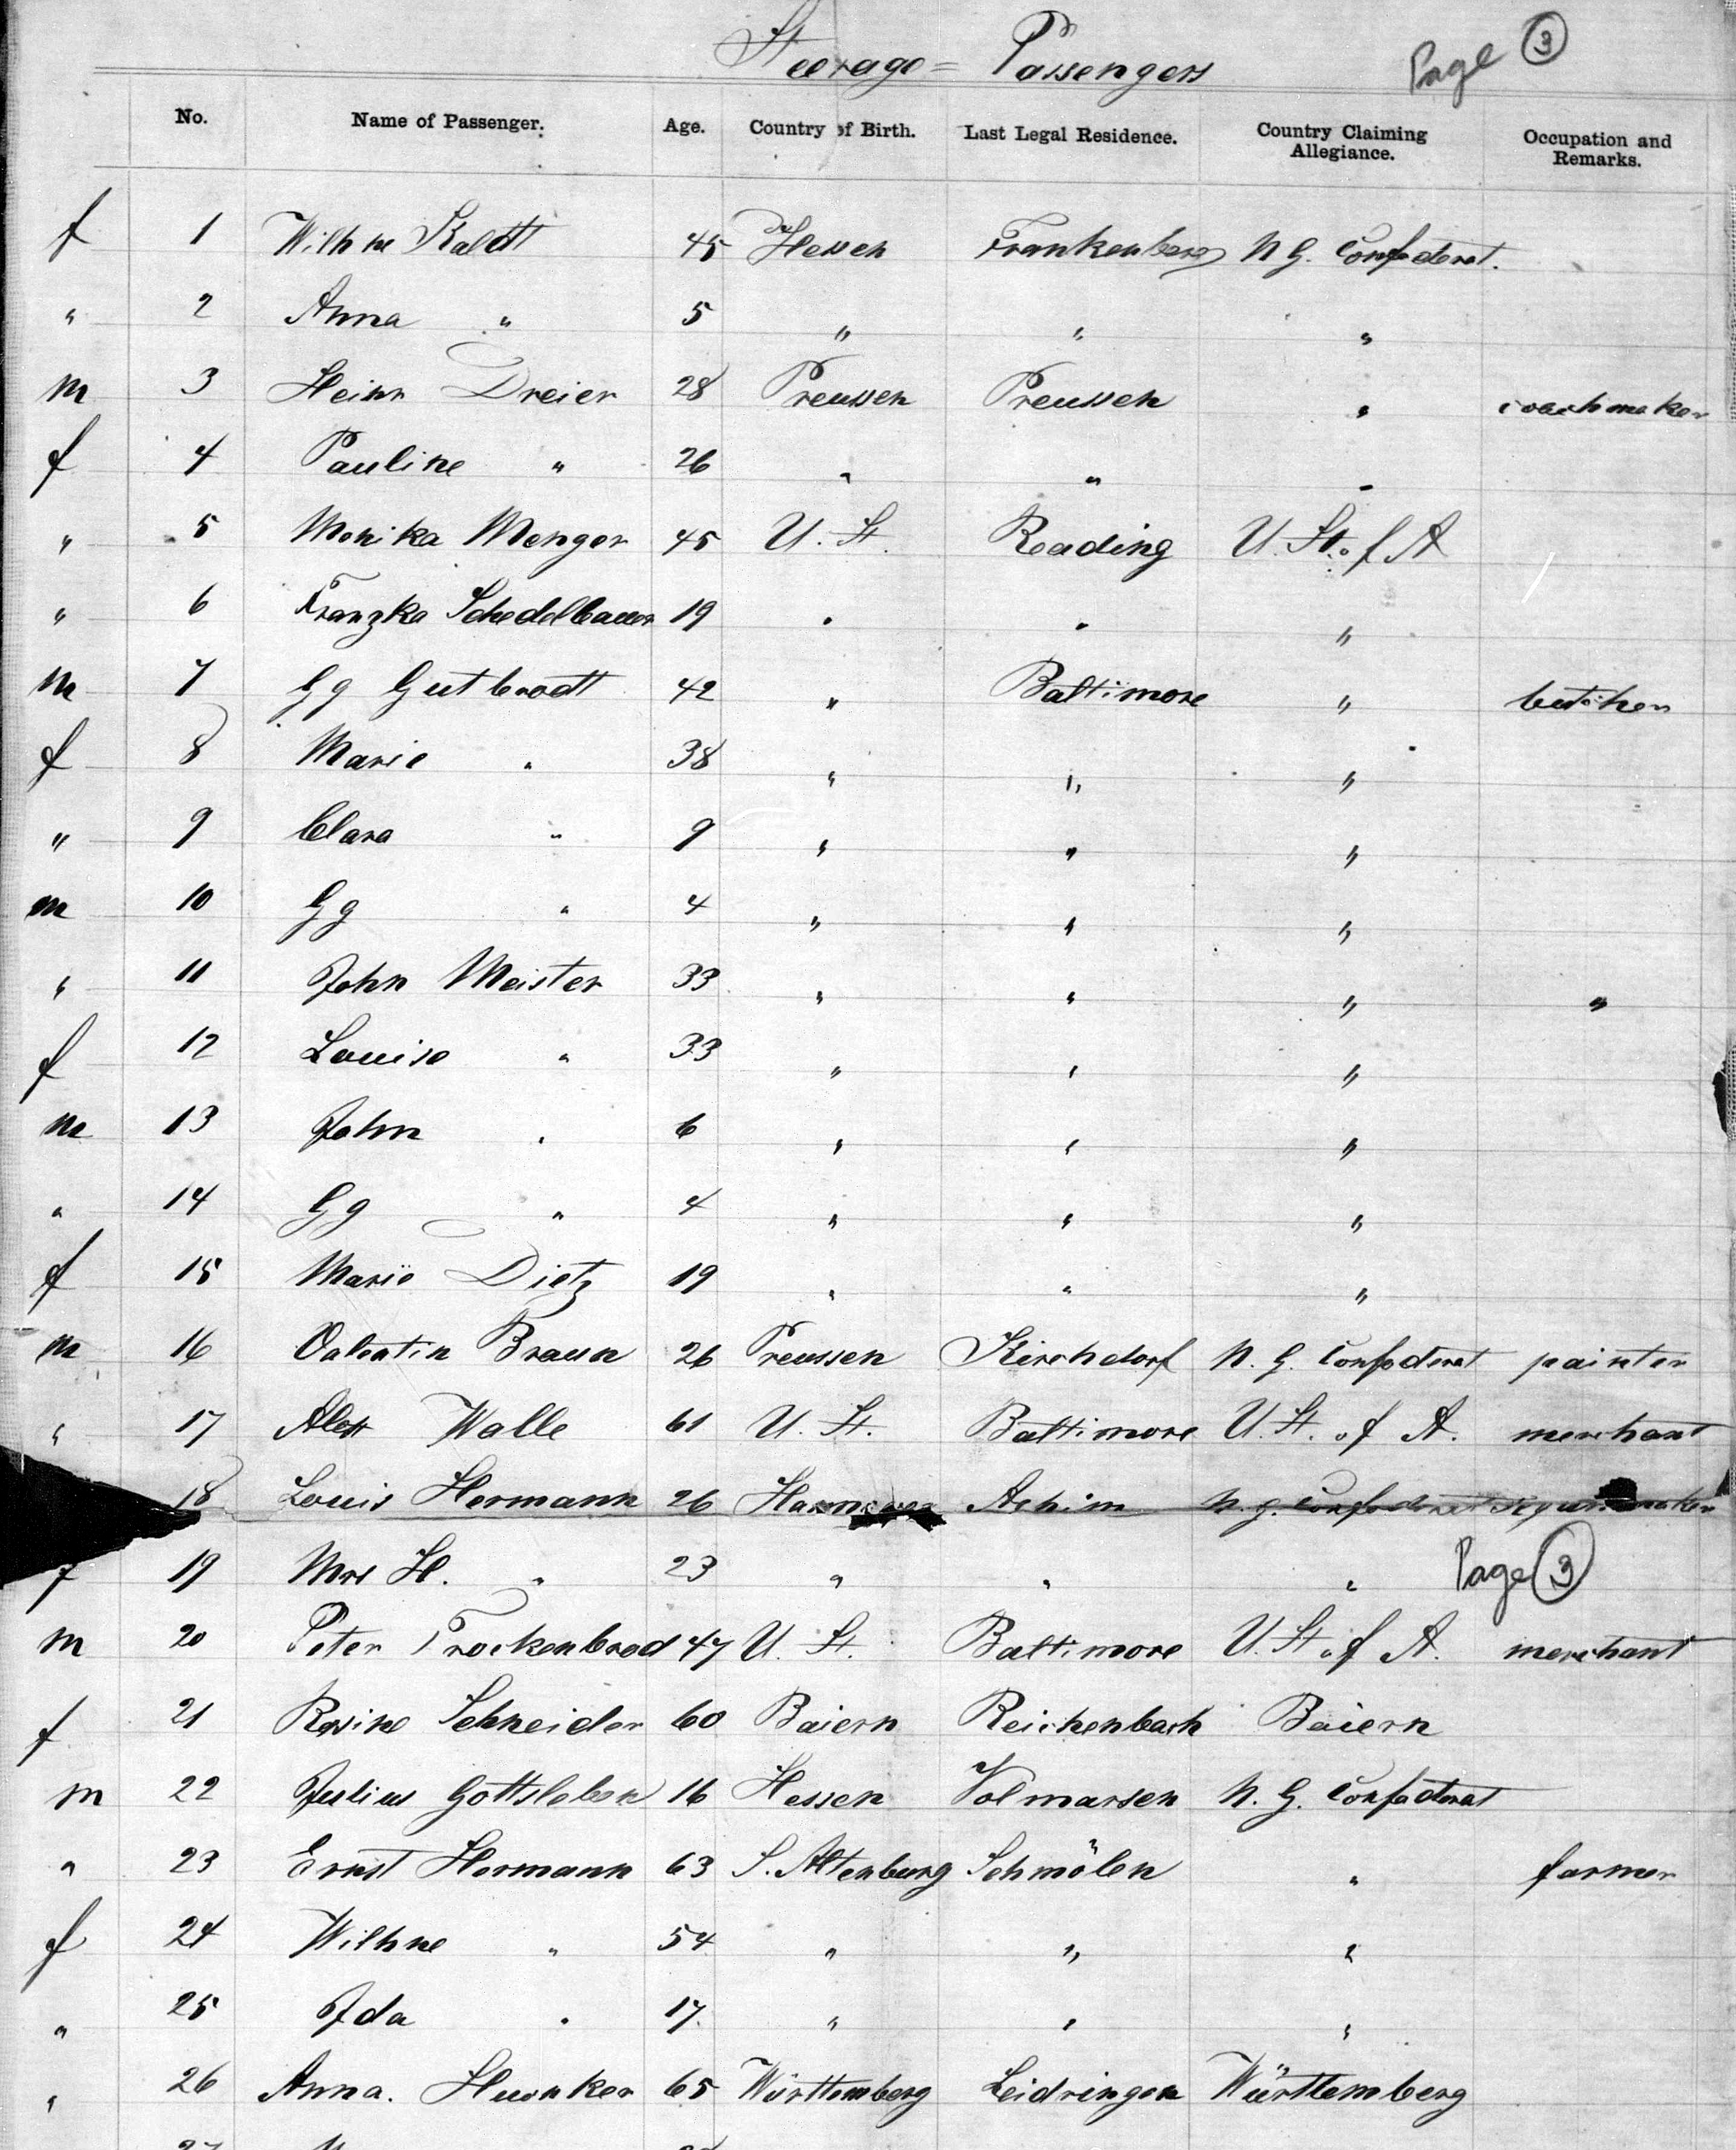 Steerage = Passengers
Page 3
No. Name of Passenger. Age. Country of Birth. Last Legal Residence. Country Claiming Allegiance. Occupation and Remarks.
f 1 Wilhne 45 Hessen Frankenberg N G. Confederat.
" 2 Anna " 5 " " "
m 3 Heinr Dreier 28 Preussen Preussen " coachmaker
f 4 Pauline " 26 " " "
" 5 Monika Menger 45 U. St. Reading U. St. of A
" 6 Franzka Schedelbauer 19 " " "
m 7 Gg Gutbrodt 42 " Baltimore " butcher
f 8 Marie " 38 " " "
" 9 Clara " 9 " " "
m 10 Gg " 4 " " "
" 11 John Meister 33 " " " "
f 12 Louise " 33 " " "
m 13 John " 6 " " "
" 14 Gg " 4 " " "
f 15 Marie Dietz 19 " " "
m 16 Valentin Braun 26 Preussen Kirchdorf N. G. Confederat painter
" 17 Walle 61 U. St. Baltimore U. St. of A. merchant
18 Louis Hermann 26 Hannover Achim N. G. Confederat
f 19 Mrs H. " 23 " " "
Page 3
m 20 Peter Trockenbrod 47 U. St. Baltimore U. St. of A. merchant
f 21 Rosine Schneider 60 Baiern Reichenbach Baiern
m 22 Julius Gottsleben 16 Hessen Volmarsen N. G. Confederat
" 23 Ernst Hermann 63 S. Altenburg Schmölen " farmer
f 24 Wilhne " 54 " " "
" 25 Ida " 17 " " "
" 26 Anna. 65 Württemberg Leidringen Württemberg
27